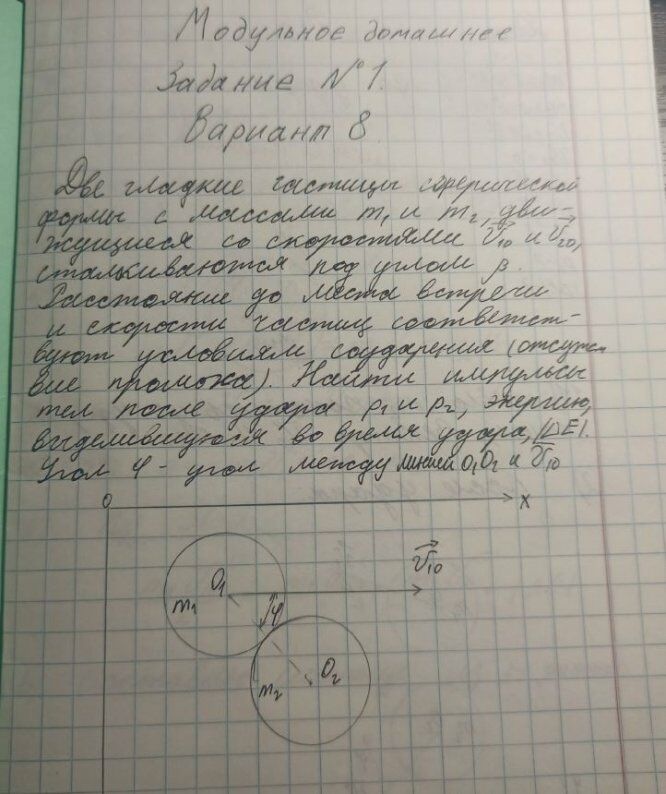 Модульное домашнее
Задание №1.
Вариант 8.
Две гладкие частицы сферической
формы с массами m₁ и m₂, дви-
жущиеся со скоростями V₁₀ и V₂₀,
сталкиваются под углом β.
Расстояние до места встречи
и скорости частиц соответст-
вуют условиям соударения (отсутс-
вие промаха). Найти импульсы
тел после удара ρ₁ и ρ₂, энергию,
выделившуюся во время удара, |ΔE|.
Угол φ - угол между линией O₁O₂ и V₁₀
0 x
O₁ V₁₀
m₁ φ
m₂ O₂